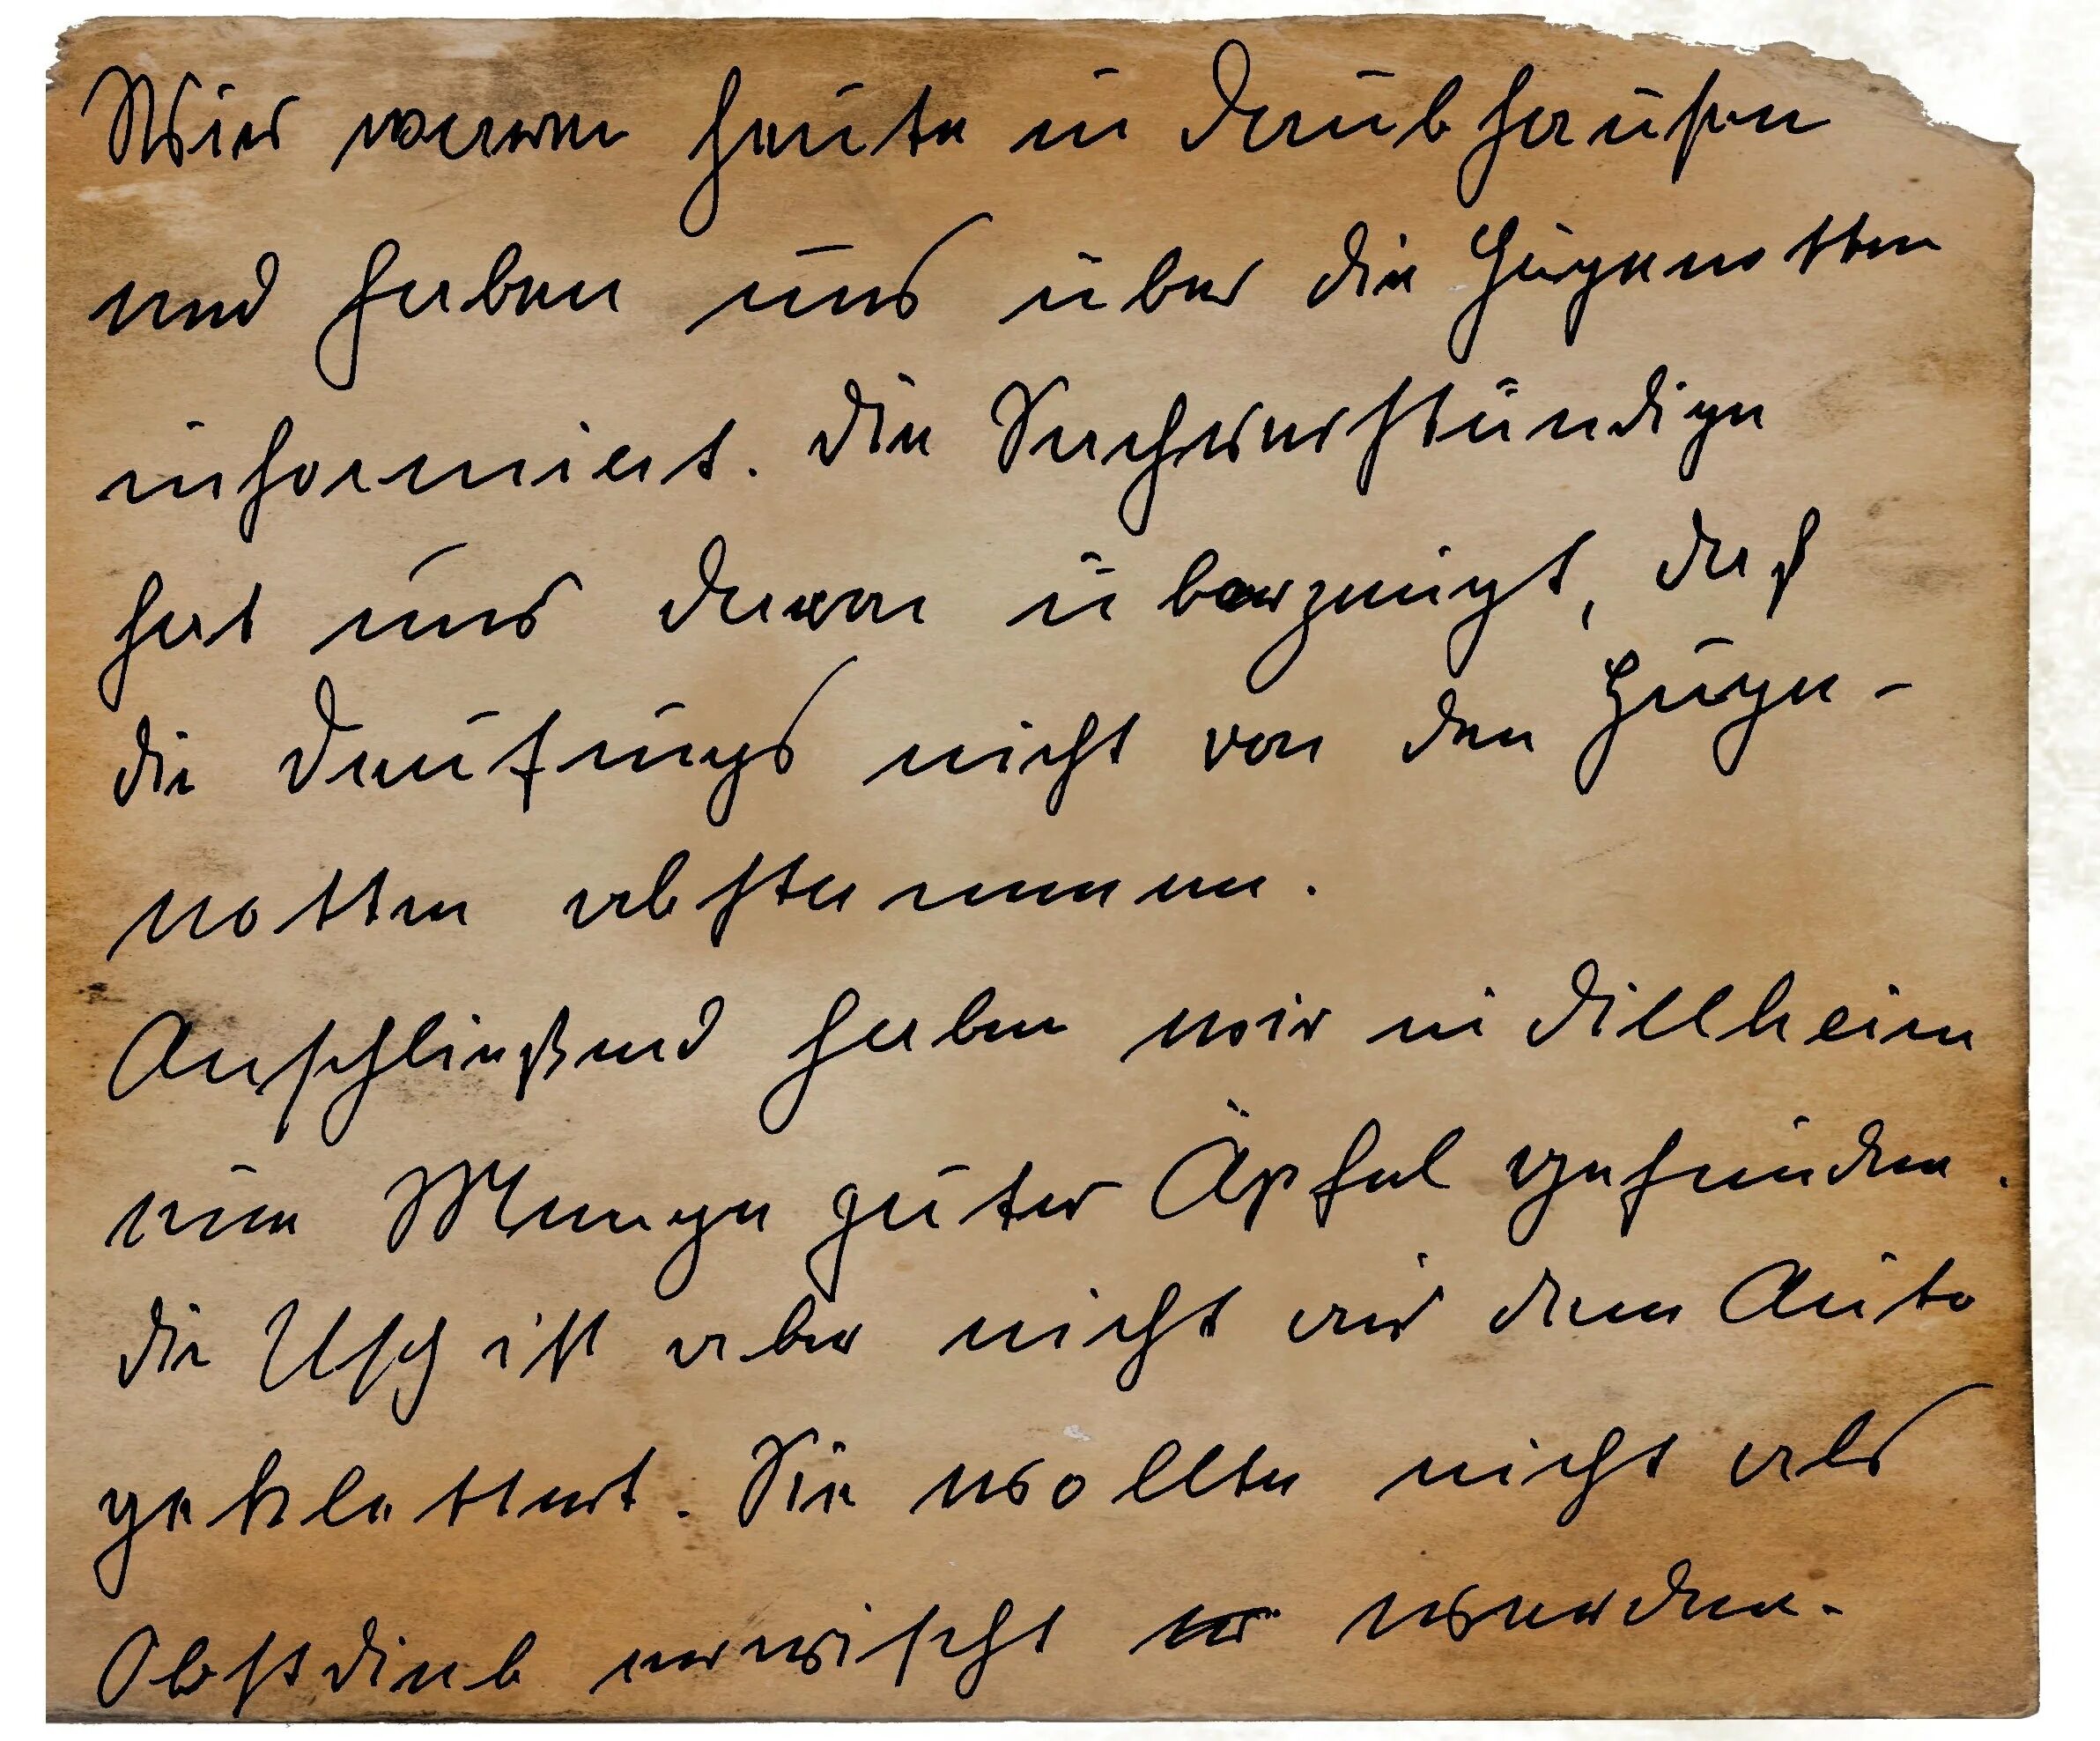 Wir waren heute in Daubhausen
und haben uns über die Hugenotten
informiert. Die Sachverständige
hat uns davon überzeugt, daß
die Deutungs nicht von den Huge-
notten abstammen.
Anschließend haben wir in Dillheim
eine Menge guter Äpfel gefunden.
die Usch ist aber nicht auf dem Auto
geklettert. Sie wollte nicht als
Obstdieb erwischt werden.